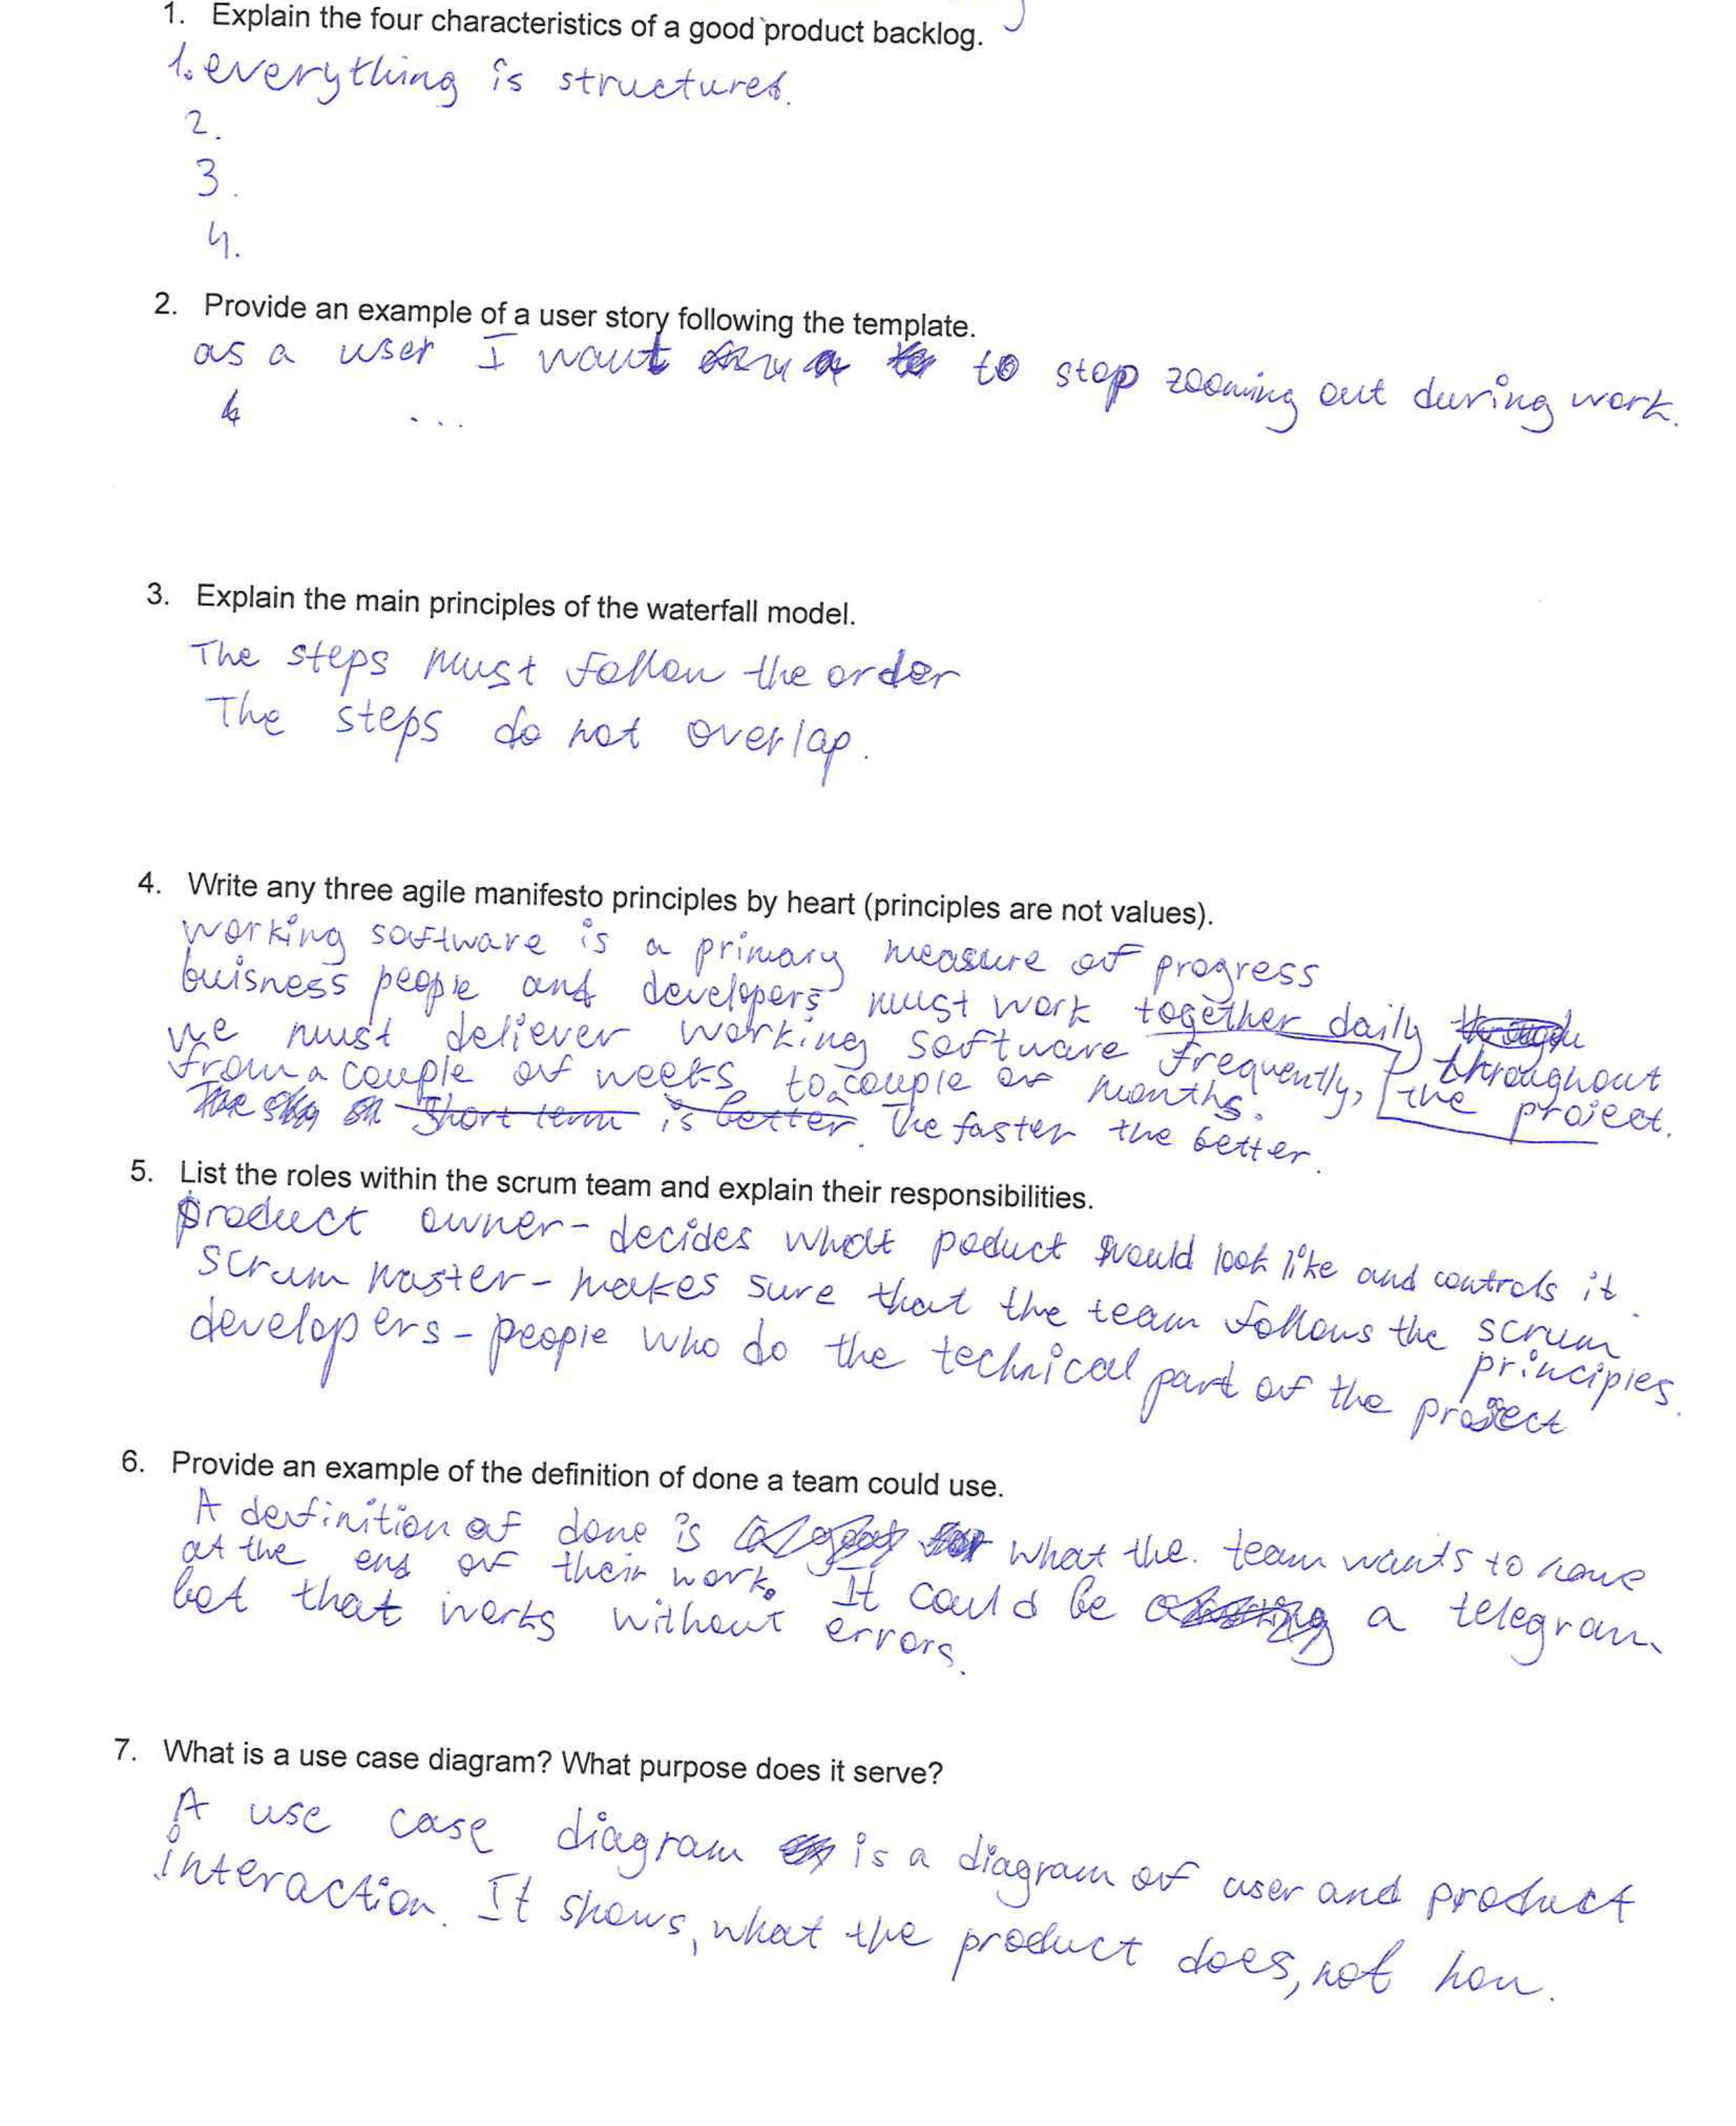 1. Explain the four characteristics of a good product backlog.
1. everything is structured.
2.
3.
4.
2. Provide an example of a user story following the template.
as a user I want to stop zooming out during work.
...
3. Explain the main principles of the waterfall model.
The steps must follow the order
The steps do not overlap.
4. Write any three agile manifesto principles by heart (principles are not values).
working software is a primary measure of progress
buisness people and developers must work together daily
throughout the project.
we must deliever working software frequently,
from a couple of weeks to a couple of months.
Short term is better. The faster the better.
5. List the roles within the scrum team and explain their responsibilities.
product owner - decides what poduct would look like and controls it.
scrum master - makes sure that the team follows the scrum
principles.
developers - people who do the technical part of the project
6. Provide an example of the definition of done a team could use.
A definition of done is what the team wants to have
at the end of their work. It could be a telegram
bot that works without errors.
7. What is a use case diagram? What purpose does it serve?
A use case diagram is a diagram of user and product
interaction. It shows, what the product does, not how.